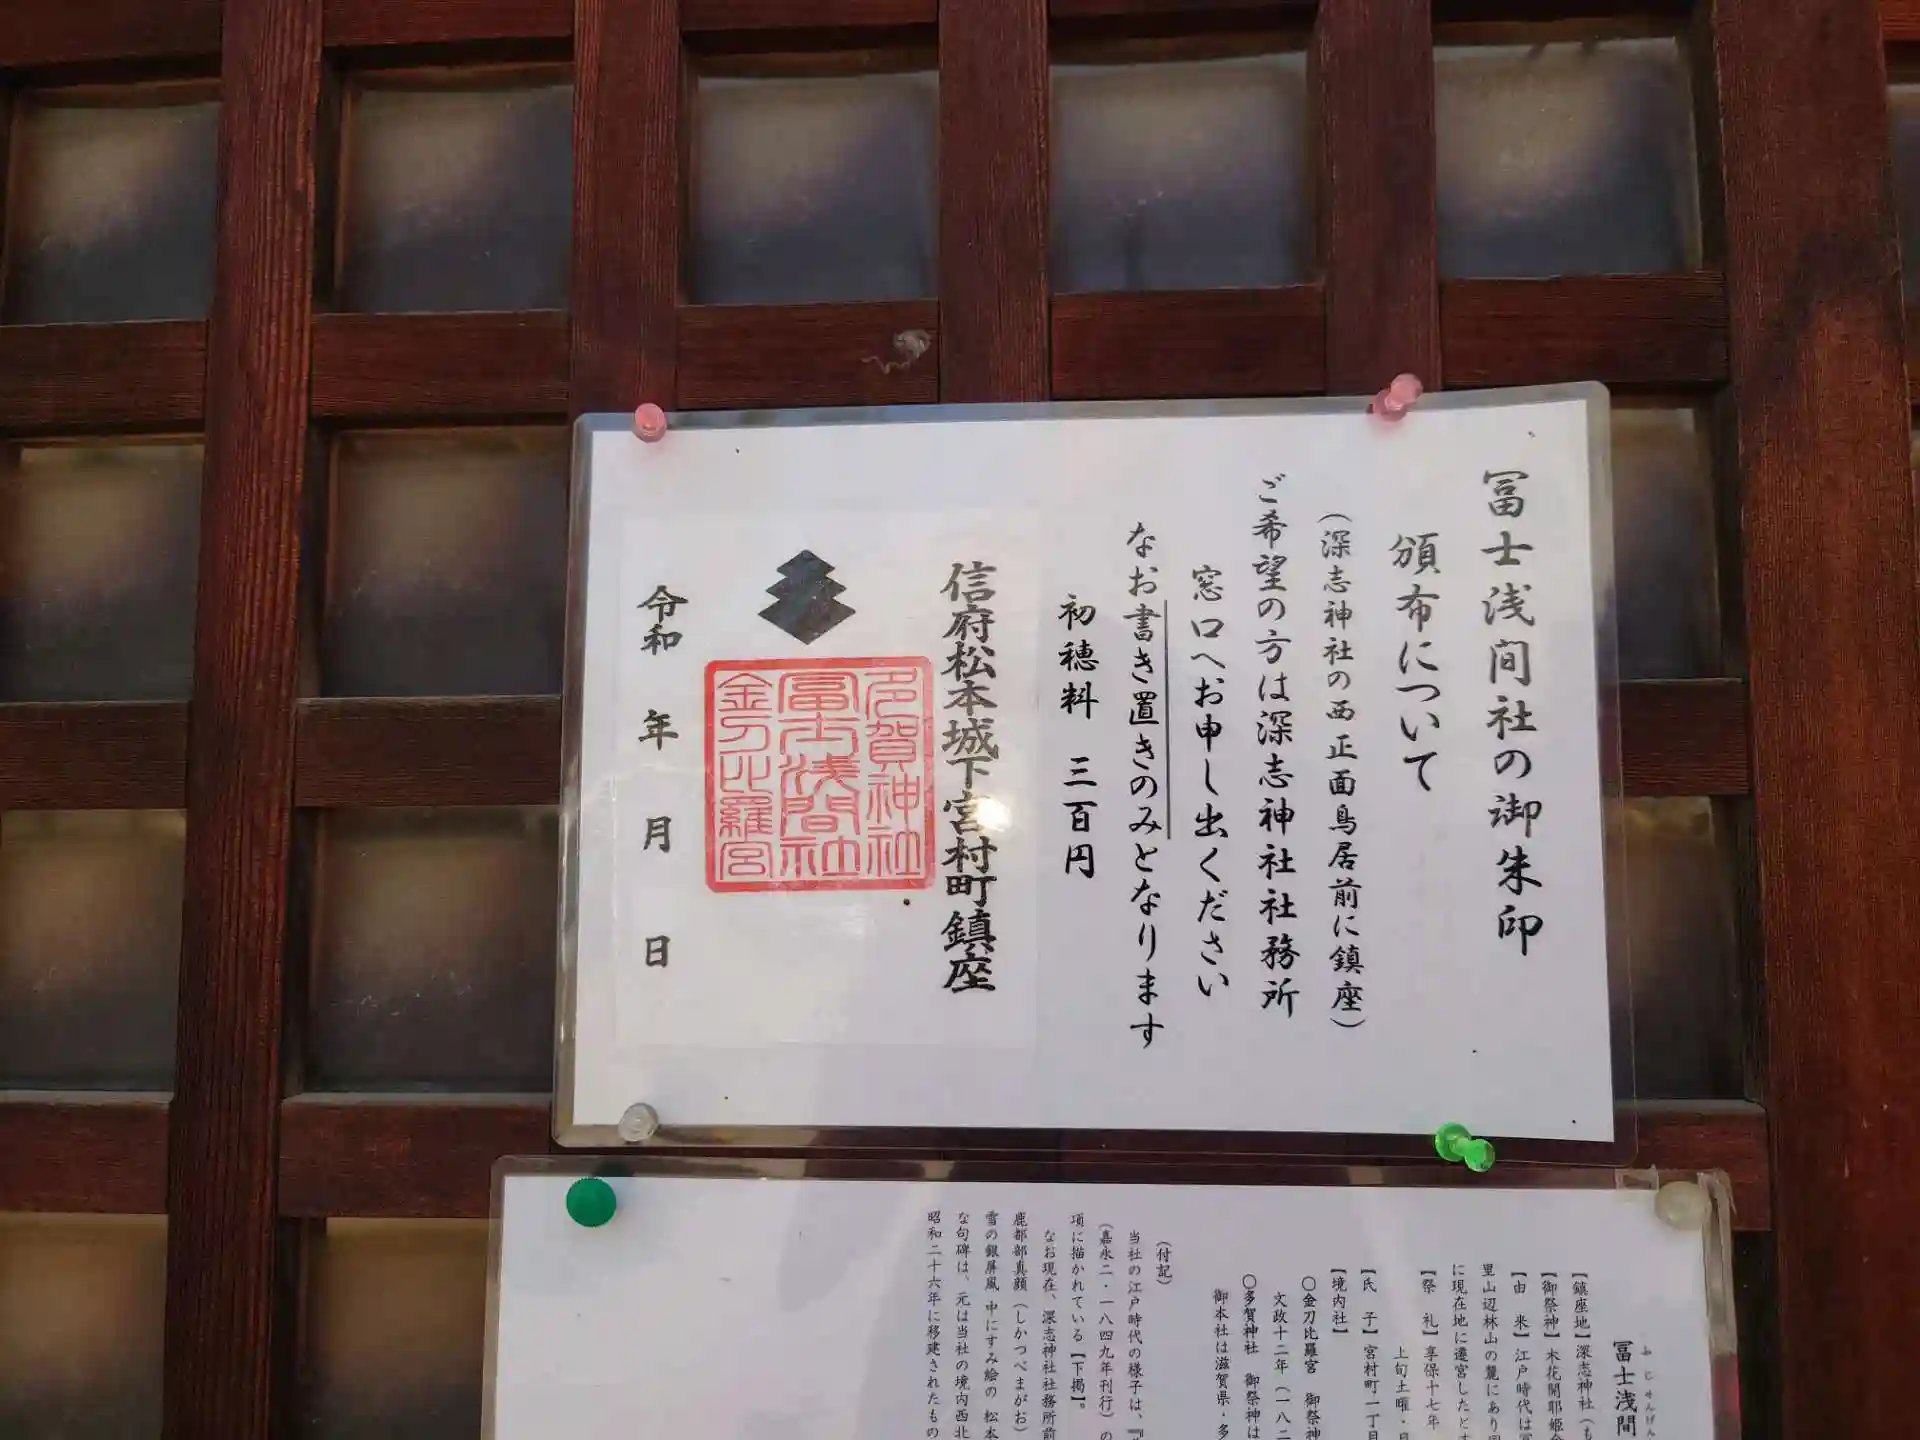 冨士浅間社の御朱印
頒布について
（深志神社の西正面鳥居前に鎮座）
ご希望の方は深志神社社務所
窓口へお申し出ください
なお書き置きのみとなります
初穂料　三百円
信府松本城下宮村町鎮座
多賀神社
冨士浅間社
金刀比羅宮
令和　年　月　日
冨士浅間
ふじせんげん
【鎮座地】深志神社（も
【御祭神】木花開耶姫命
【由　来】江戸時代は冨
里山辺林山の麓にあり
に現在地に遷宮したと
【祭　礼】享保十七年
上旬土曜・日
【氏　子】宮村町一丁目
【境内社】
〇金刀比羅宮　御祭神
文政十二年（一八二
〇多賀神社　御祭神は
御本社は滋賀県・多
（付記）
当社の江戸時代の様子は、『
（嘉永二・一八四九年刊行）の
項に描かれている【下掲】。
なお現在、深志神社社務所前
鹿都部真顔（しかつべまがお）
雪の銀屏風 中にすみ絵の 松本
な句碑は、元は当社の境内西北
昭和二十六年に移建されたもの